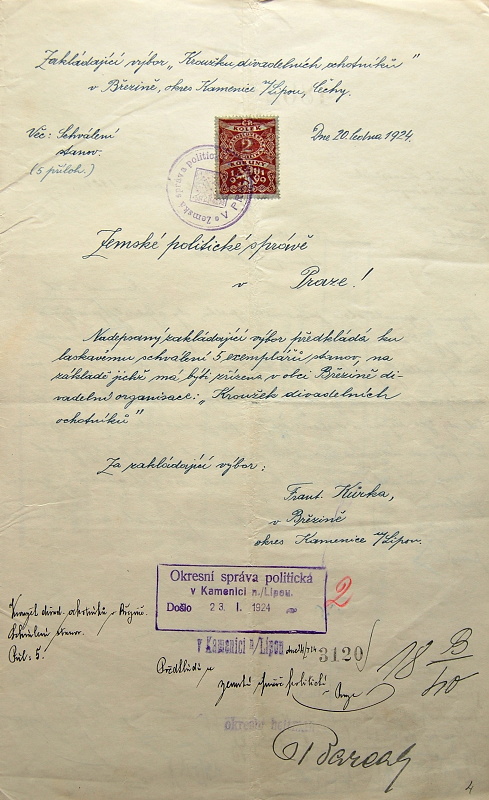 Zakládající výbor „Kroužku divadelních ochotníků"
v Březině, okres Kamenice n/Lipou, Čechy.
Věc: Schválení
stanov.
(5 příloh.)
Dne 20. ledna 1924.
ČR.
KOLEK
2
KORUNY
Zemská správa politická v Pr
Zemské politické správě
v Praze!
Nadepsaný zakládající výbor předkládá ku
laskavému schválení 5 exemplářů stanov, na
základě jichž má býti zřízena v obci Březině di-
vadelní organisace: „Kroužek divadelních
ochotníků"
Za zakládající výbor:
Frant. Kůrka,
v Březině
okres Kamenice n/Lipou.
Okresní správa politická
v Kamenici n./Lipou.
Došlo 23. I. 1924
2
v Kamenici n/Lipou dne
3120/
Schválení stanov.
Příl: 5.
Předkládá se
zemské správě politické
Praze
18 B/10
okresní hejtman
4